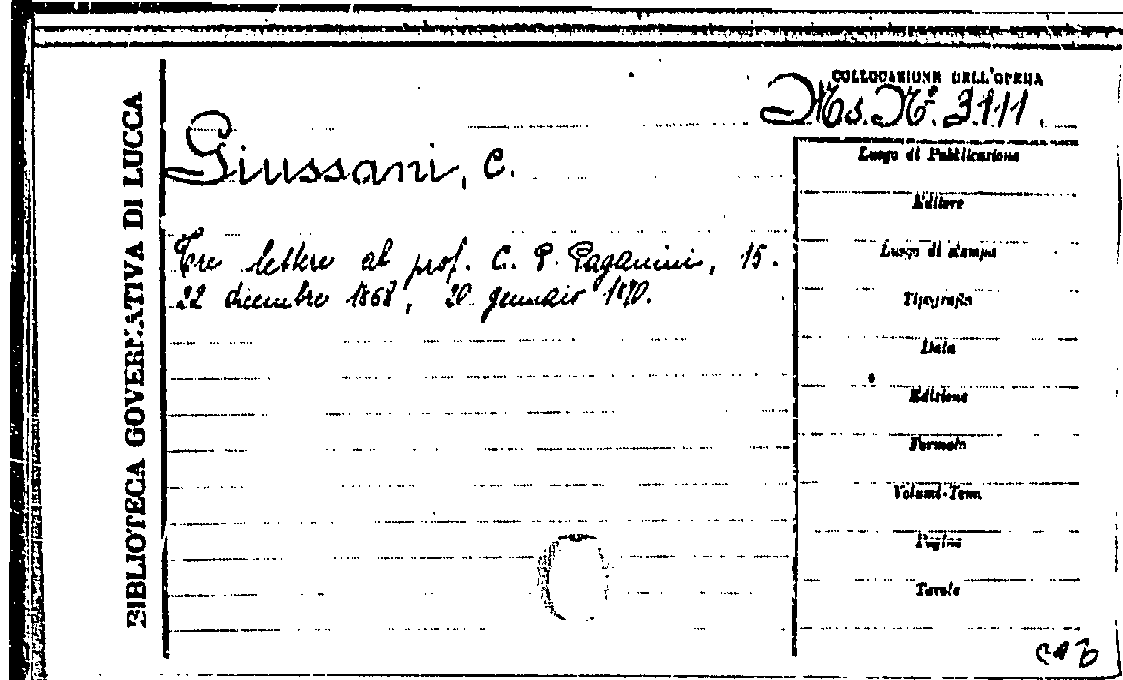 BIBLIOTECA GOVERNATIVA DI LUCCA
COLLOCAZIONE DELL'OPERA
Ms. N.º 3111.
Giussani, C.
Tre lettere al prof. C. P. Paganini, 15.
22 dicembre 1868, 20 gennaio 1870.
Luogo di Pubblicazione
Editore
Luogo di stampa
Tipografia
Data
Edizione
Formato
Volumi-Tomi
Pagine
Tavole